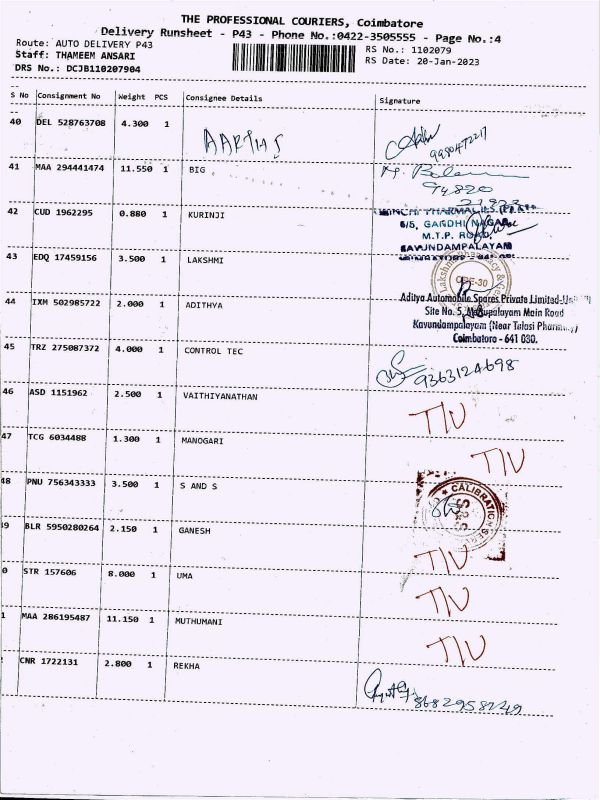 THE PROFESSIONAL COURIERS, Coimbatore
Delivery Runsheet - P43 - Phone No.:0422-3505555 - Page No.:4
Route: AUTO DELIVERY P43
Staff: THAMEEM ANSARI
DRS No.: DCJB110207904
RS No.: 1102079
RS Date: 20-Jan-2023
S No Consignment No Weight PCS Consignee Details Signature
40 DEL 528763708 4.300 1 AARTHS
9980472217
41 MAA 294441474 11.550 1 BIG
94820
42 CUD 1962295 0.880 1 KURINJI
6/5, GANDHI NAGAR
M.T.P. ROAD,
KAVUNDAMPALAYAM
43 EDQ 17459156 3.500 1 LAKSHMI
44 IXM 502985722 2.000 1 ADITHYA
Aditya Automobile Spares Private Limited
Site No. 5, Mettupalayam Main Road
Kavundampalayam (Near Tulasi Pharmacy)
Coimbatore - 641 030.
45 TRZ 275087372 4.000 1 CONTROL TEC
9363124698
46 ASD 1151962 2.500 1 VAITHIYANATHAN T/U
47 TCG 6034488 1.300 1 MANOGARI T/U
48 PNU 756343333 3.500 1 S AND S CALIBRATION
9 BLR 5950280264 2.150 1 GANESH T/U
0 STR 157606 8.000 1 UMA T/U
1 MAA 286195487 11.150 1 MUTHUMANI T/U
CNR 1722131 2.800 1 REKHA
8682958249